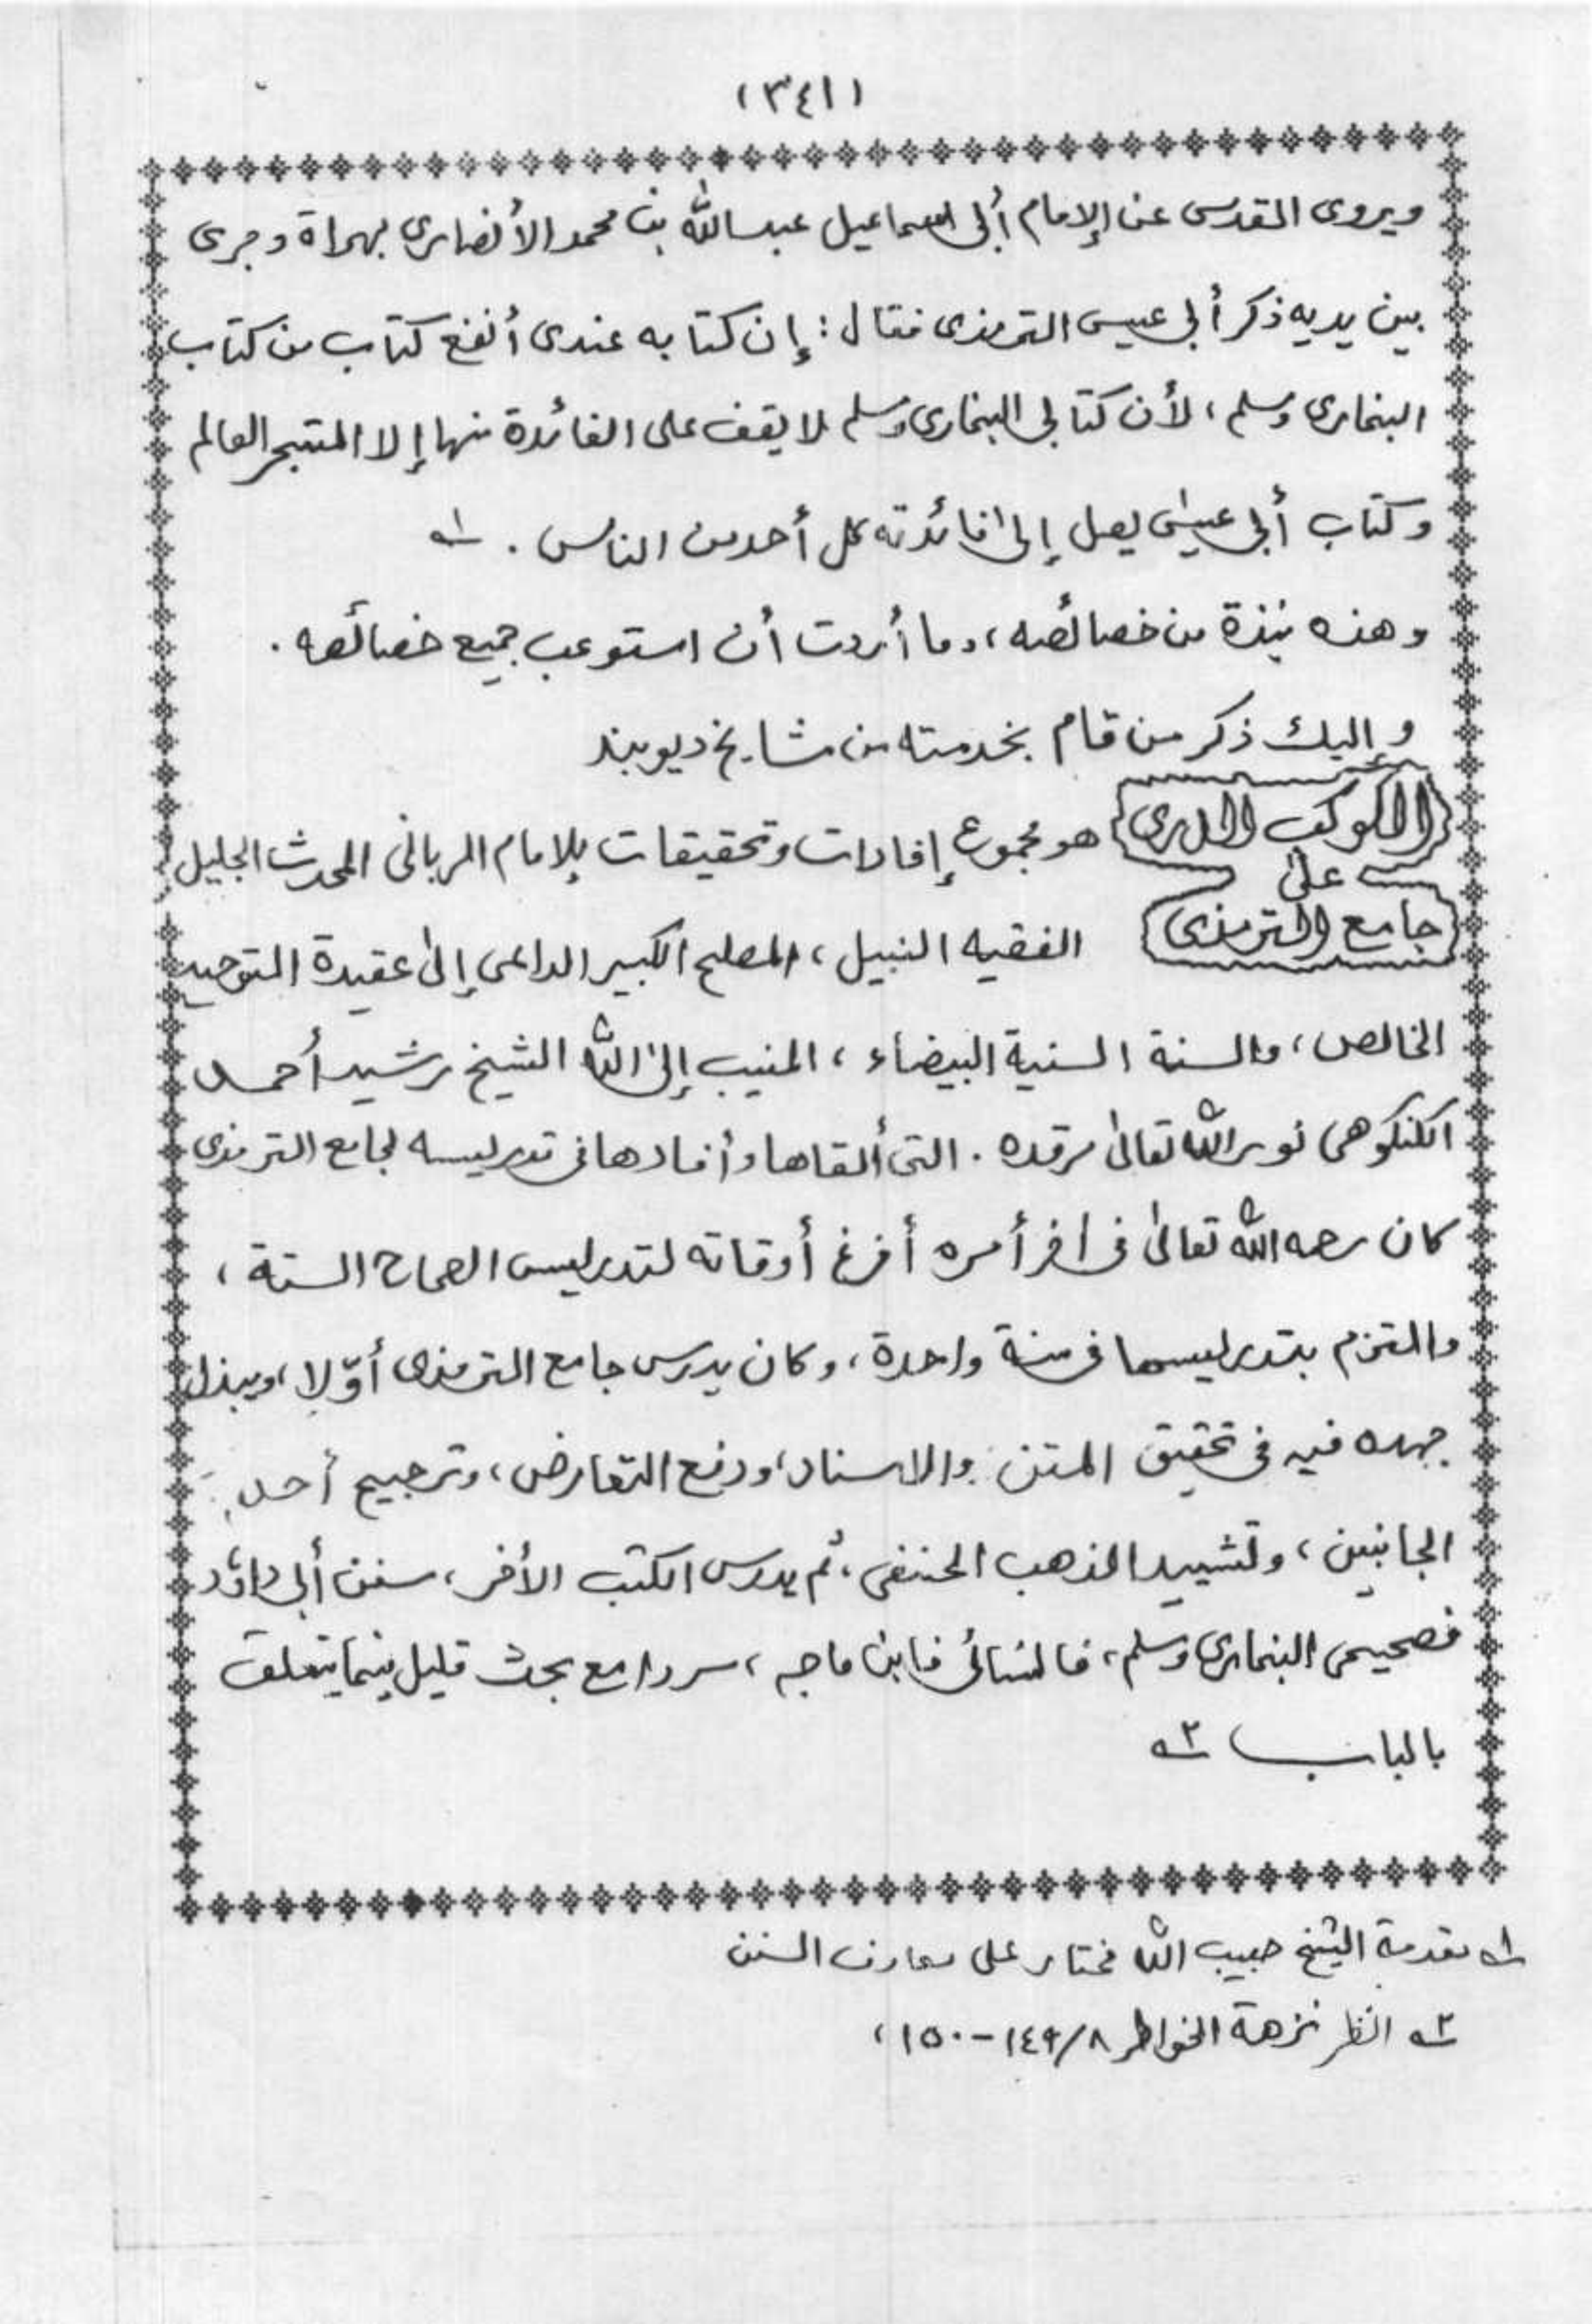 (٣٤١)
ويروى المقدسى عن الإمام أبى اسماعيل عبد الله بن محمد الأنصارى بهراة وجرى
بين يديه ذكر أبى عيسى الترمذى فقال: إن كتابه عندى أنفع كتاب من كتاب
البخارى ومسلم، لأن كتابى البخارى ومسلم لا يقف على الفائدة منها إلا المتبحر العالم
وكتاب أبى عيسىٰ يصل إلىٰ فائدته كل أحد من الناس. ١ھ
وهذه نبذة من خصائصه، وما أردت أن استوعب جميع خصائصه.
وإليك ذكر من قام بخدمته من مشايخ ديوبند
الكوكب الدرى هو مجموع إفادات وتحقيقات للإمام الربانى المحدث الجليل
علىٰ
جامع الترمذى الفقيه النبيل، المصلح الكبير الداعى إلىٰ عقيدة التوحيد
الخالص، والسنة السنية البيضاء، المنيب إلىٰ الله الشيخ رشيد أحمد
الكنكوهى نور الله تعالىٰ مرقده. التى ألقاها وأفادها فى تدريسه لجامع الترمذى
كان رحمه الله تعالىٰ فى أخر أمره أفرغ أوقاته لتدريس الصحاح الستة،
والتزم بتدريسها فى سنة واحدة، وكان يدرس جامع الترمذى أوّلا، ويبذل
جهده فيه فى تحقيق المتن والاسناد، ودفع التعارض، وترجيح أحد
الجانبين، وتشييد المذهب الحنفى، ثم يدرس الكتب الأخر، سنن أبى داؤد
فصحيحى البخارى ومسلم، فالنسائى فابن ماجه، سردا مع بحث قليل فيما يتعلق
بالباب ٢ھ
١ھ مقدمة الشيخ حبيب الله مختار على معارف السنن
٢ھ انظر نزهة الخواطر ١٤٩/٨-١٥٠،